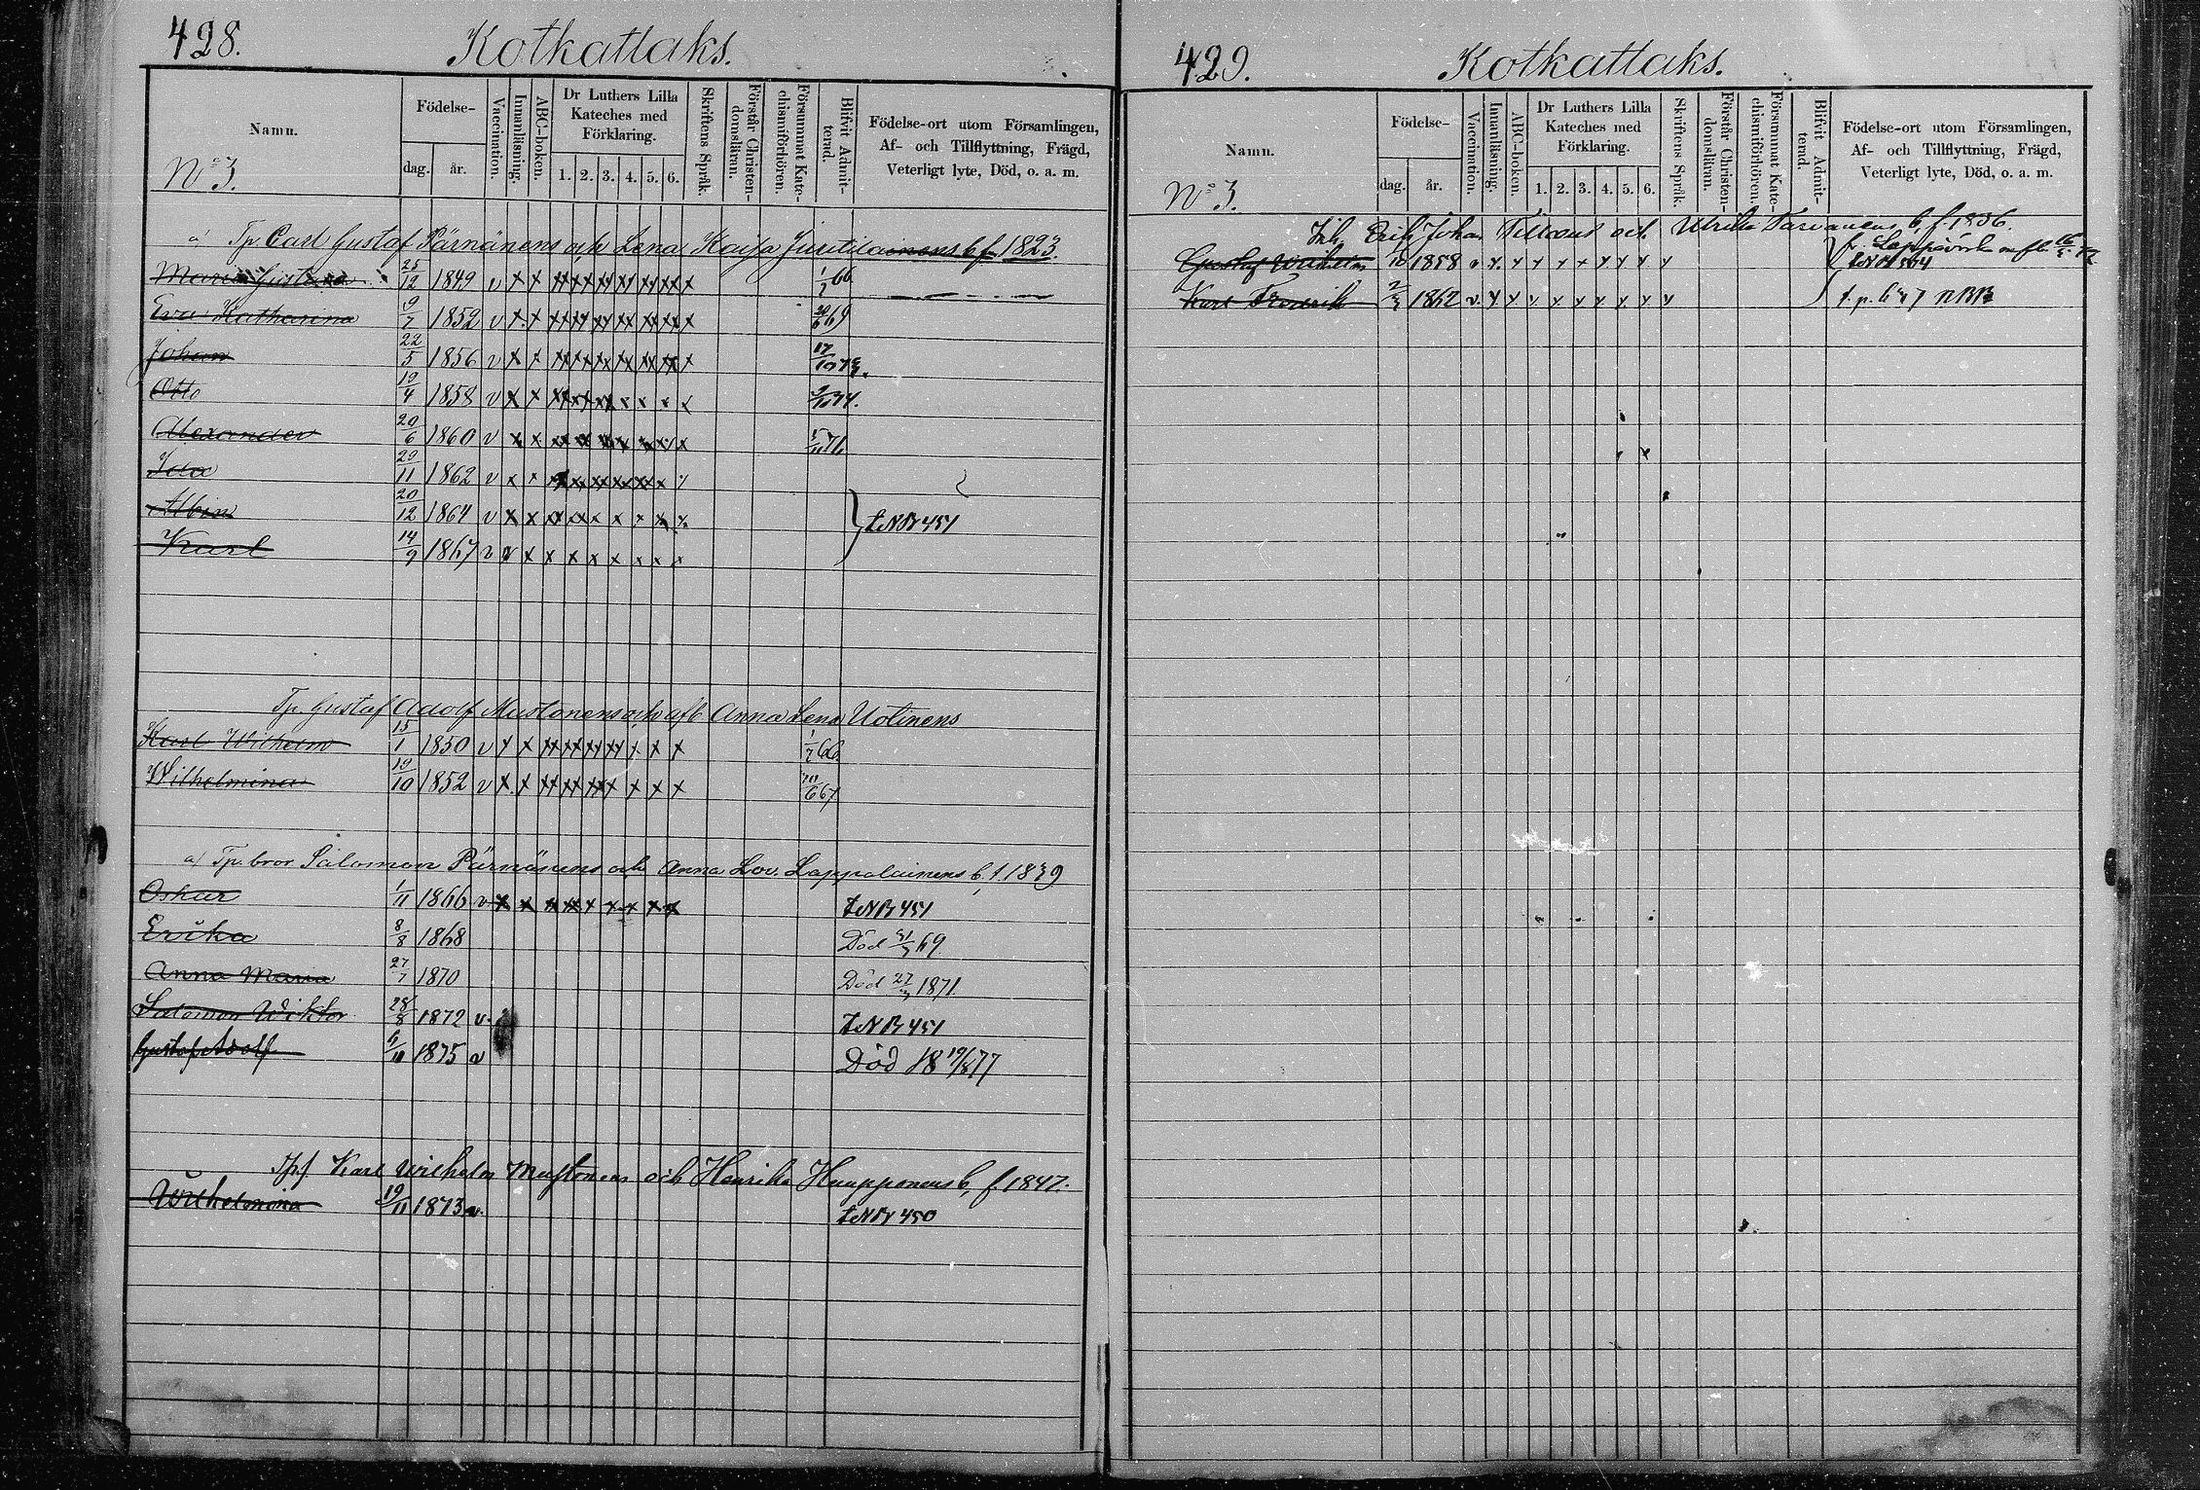 428.
Kotkattaks.
Namn.
Födelse-
dag.
år.
Vaccination.
Innanläsning.
ABC-boken.
Dr Luthers Lilla
Kateches med
Förklaring.
1. 2. 3. 4. 5. 6.
Skriftens Språk.
Förstår Christen-
domsläran.
Försummat Kate-
chismiförhören.
Blifvit Admit-
terad.
Födelse-ort utom Församlingen,
Af- och Tillflyttning, Frägd,
Veterligt lyte, Död, o. a. m.
No 3.
a) Tp. Carl Gustaf Pärnänens och Lena Kaija Juutilainens b. f. 1823.
Maria Gustava 25/12 1849 v 1/7 66
Eva Katharina 9/7 1852 v 69
Johan 22/5 1856 v 17/10 73.
Otto 19/4 1858 v 74.
Alexander 20/6 1860 v 76
Ida 29/11 1862 v
Albin 20/12 1864 v LNB 451
Karl 14/9 1867 v
Tp. Gustaf Adolf Mustonens och afl. Anna Lena Uotinens
Karl Wilhelm 15/1 1850 v 1/7 66
Wilhelmina 19/10 1852 v 67
a) Tp. bror Salomon Pärnänens och Anna Lov. Lappalainens b. f. 1839
Oskar 1/11 1866 v LNB 451
Erika 8/8 1868 Död 69.
Anna Maria 27/7 1870 Död 1871.
Salomon Wiktor 28/8 1872 v. LNB 451
Gustaf Adolf. 6/11 1875 v Död 18 19/8 77
Karl Wilhelm Mustonens och Henrika Huupponens b, f. 1847.
Wilhelmina 19/11 1873 v. LNB 450
429.
Kotkattaks.
Namn.
Födelse-
dag.
år.
Vaccination.
Innanläsning.
ABC-boken.
Dr Luthers Lilla
Kateches med
Förklaring.
1. 2. 3. 4. 5. 6.
Skriftens Språk.
Förstår Christen-
domsläran.
Försummat Kate-
chismiförhören.
Blifvit Admit-
terad.
Födelse-ort utom Församlingen,
Af- och Tillflyttning, Frägd,
Veterligt lyte, Död, o. a. m.
No 3.
Inh. Erik Johan och Ulrika b. f. 1836.
Gustaf Wilhelm 1858 v
Karl Fredrik 1862 v.